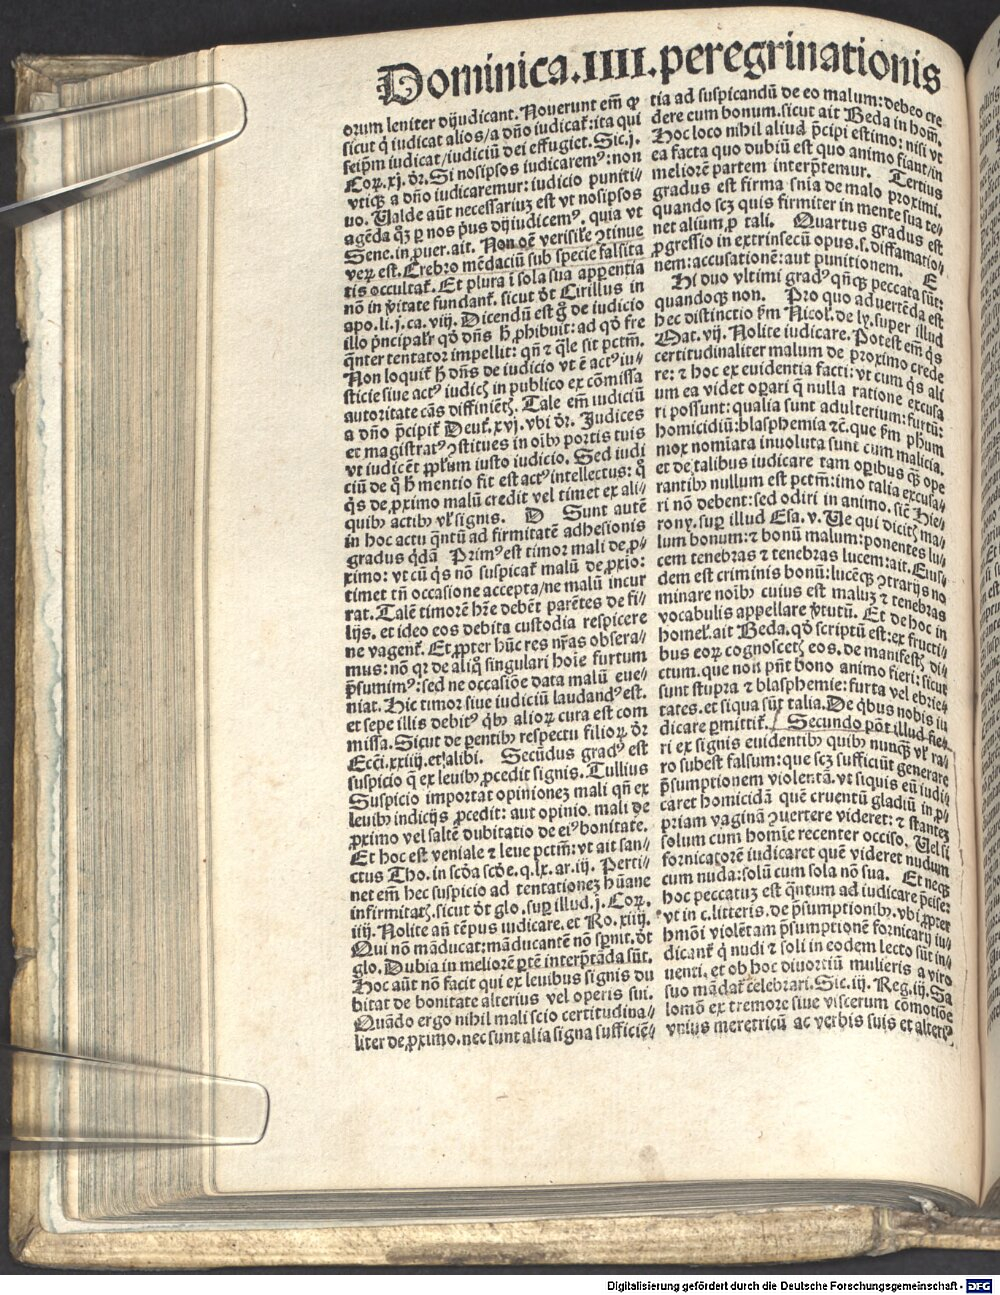 Dominica.IIII.peregrinationis
orum leniter dijudicant. Nouerunt em̄ ꝙ
sicut q̇ iudicat alios/a dn̄o iudicat᷑:ita qui
seip̄m iudicat/iudiciū dei effugiet. Sic.j.
Coꝝ.xj. dr̄. Si nosipsos iudicarem⁹:non
vtiqꝫ a dn̄o iudicaremur: iudicio puniti⸗
uo. Ualde aūt necessariuꝫ est vt nosipsos
agēda qꝫ ꝑ nos pͥus dijudicem⁹. quia vt
Sene.in ꝓuer.ait. Non oē verisil̄e ꝯtinue
veꝝ est. Crebro mēdaciū sub specie falsita
tis occultat᷑. Et plura ī sola sua apparentia
nō in ṽitate fundant᷑. sicut dt̄ Cirillus in
apo.li.j.ca.viij. Dicendū est g̊ de iudicio
illo pͥncipalr̄ qd̄ dn̄s ħ ꝓhibuit: ad qd̄ fre
q̄nter tentator impellit: qn̄ ⁊ q̄le sit pctm̄.
Non loquit᷑ ħ dn̄s de iudicio vt ē act⁹ iu⸗
sticie siue act⁹ iudicꝭ in publico ex cōmissa
autoritate cās diffiniētꝭ. Tale em̄ iudiciū
a dn̄o p̄cipit᷑ Deut̄.xvj.vbi dr̄. Judices
et magistrat⁹ ꝯstitues in oībꝰ portis tuis
vt iudicēt ppl̄um iusto iudicio. Sed iudi
ciū de q̊ ħ mentio fit est act⁹ intellectus: q̊
q̇s de ꝓximo malū credit vel timet ex ali⸗
quibꝰ actibꝰ vl̄ signis. D Sunt autē
in hoc actu q̄ntū ad firmitatē adhesionis
gradus qͥdā Prim⁹ est timor mali de ꝓ⸗
ximo: vt cū q̇s nō suspicat᷑ malū de ꝓxio:
timet tn̄ occasione accepta/ne malū incur
rat. Talē timorē hr̄e debēt parētes de fi⸗
lijs. et ideo eos debita custodia respicere
ne vagent᷑. Et ꝓpter hūc res nr̄as obsera⸗
mus: nō qꝛ de aliq̊ singulari hoīe furtum
p̄sumim⁹: sed ne occasiōe data malū eue⸗
niat. Hic timor siue iudiciū laudand⁹ est.
et sepe illis debit⁹ qͥbꝰ alioꝝ cura est com
missa. Sicut de ꝑentibꝰ respectu filioꝝ dr̄
Ecci.xxiiij.et alibi. Secūdus grad⁹ est
suspicio q̄ ex leuibꝰ ꝓcedit signis. Tullius
Suspicio importat opinionez mali qn̄ ex
leuibꝰ indicijs ꝓcedit: aut opinio. mali de
ꝓximo vel saltē dubitatio de ei⁹ bonitate.
Et hoc est veniale ⁊ leue pctm̄: vt ait san⸗
ctus Tho. in scd̄a scd̄e.q.lx.ar.iij. Perti⸗
net em̄ hec suspicio ad tentationez hūane
infirmitatꝭ.sicut dt̄ glo. suꝑ illud.j. Coꝝ.
iiij. Nolite an̄ tēpus iudicare.et Ro.xiiij.
Qui nō māducat:māducantē nō spernit.dt̄
glo. Dubia in meliorē ꝑtē interp̄tāda sūt.
Hoc aūt nō facit qui ex leuibus signis du
bitat de bonitate alterius vel operis sui.
Quādo ergo nihil mali scio certitudina⸗
liter de ꝓximo.nec sunt alia signa sufficiē⸗
tia ad suspicandū de eo malum:debeo cre
dere eum bonum.sicut ait Beda in hom̄.
Hoc loco nihil aliud p̄cipi estimo: nisi vt
ea facta quo dubiū est quo animo fiant/in
meliorē partem interp̄temur. Tertius
gradus est firma snīa de malo proximi.
quando scꝫ quis firmiter in mente sua te⸗
net alium ꝓ tali. Quartus gradus est
ꝓgressio in extrinsecū opus.s.diffamatio⸗
nem:accusationē:aut punitionem. E
Hi duo vltimi grad⁹ qn̄qꝫ peccata sūt:
quandoqꝫ non. Pro quo aduertēda est
hec distinctio ẜm Nicol̄. de ly.super illud
Mat. vij. Nolite iudicare. Potest em̄ q̇s
certitudinaliter malum de proximo crede
re: ⁊ hoc ex euidentia facti: vt cum q̇s ali
um ea videt oꝑari q̄ nulla ratione excusa
ri possunt: qualia sunt adulterium: furtū:
homicidiū:blasphemia ⁊c̄. que ẜm ph̄um
mox nomīata inuoluta sunt cum malicia.
et de talibus iudicare tam oꝑibus qꝫ ope
rantibꝰ nullum est pctm̄: imo talia excusa⸗
ri nō debent: sed odiri in animo. sic̄ Hie⸗
rony. suꝑ illud Esa. v. Ue qui dicitꝭ ma⸗
lum bonum: ⁊ bonū malum: ponentes lu⸗
cem tenebras ⁊ tenebras lucem: ait. Eius⸗
dem est criminis bonū: lucēqꝫ ꝯtrarijs no
minare noībꝰ cuius est maluꝫ ⁊ tenebras
vocabulis appellare ṽtutū. Et de hoc in
homel̄. ait Beda. qd̄ scriptū est: ex fructi⸗
bus eoꝝ cognoscetꝭ eos. de manifestꝭ di⸗
ctum. que non pn̄t bono animo fieri: sicut
sunt stupra ⁊ blasphemie: furta vel ebrie⸗
tates. et siqua sūt talia. De qͥbus nobis iu
dicare ꝑmittit᷑. Secundo pōt illud fie⸗
ri ex signis euidentibꝰ quibꝰ nunqꝫ vl̄ ra⸗
ro subest falsum: que scꝫ sufficiūt generare
p̄sumptionem violentā. vt siquis eū iudi⸗
caret homicidā quē cruentū gladiū in ꝓ⸗
priam vaginā ꝯuertere videret: ⁊ stantez
solum cum homīe recenter occiso. Uel si
fornicatorē iudicaret quē videret nudum
cum nuda: solū cum sola nō sua. Et neqꝫ
hoc peccatuꝫ est q̄ntum ad iudicare
vt in c. litteris. de p̄sumptionibꝰ. vbi ꝓpter
hmōi violētam p̄sumptionē fornicarij iu⸗
dicant᷑ q̇ nudi ⁊ soli in eodem lecto sūt in⸗
uenti. et ob hoc diuortiū mulieris a viro
suo mādat᷑ celebrari. Sic.iij. Reg.iij. Sa
lomō ex tremore siue viscerum comotiōe
vnius meretricū ac verbis suis et alteri⁹
Digitalisierung gefördert durch die Deutsche Forschungsgemeinschaft - DFG